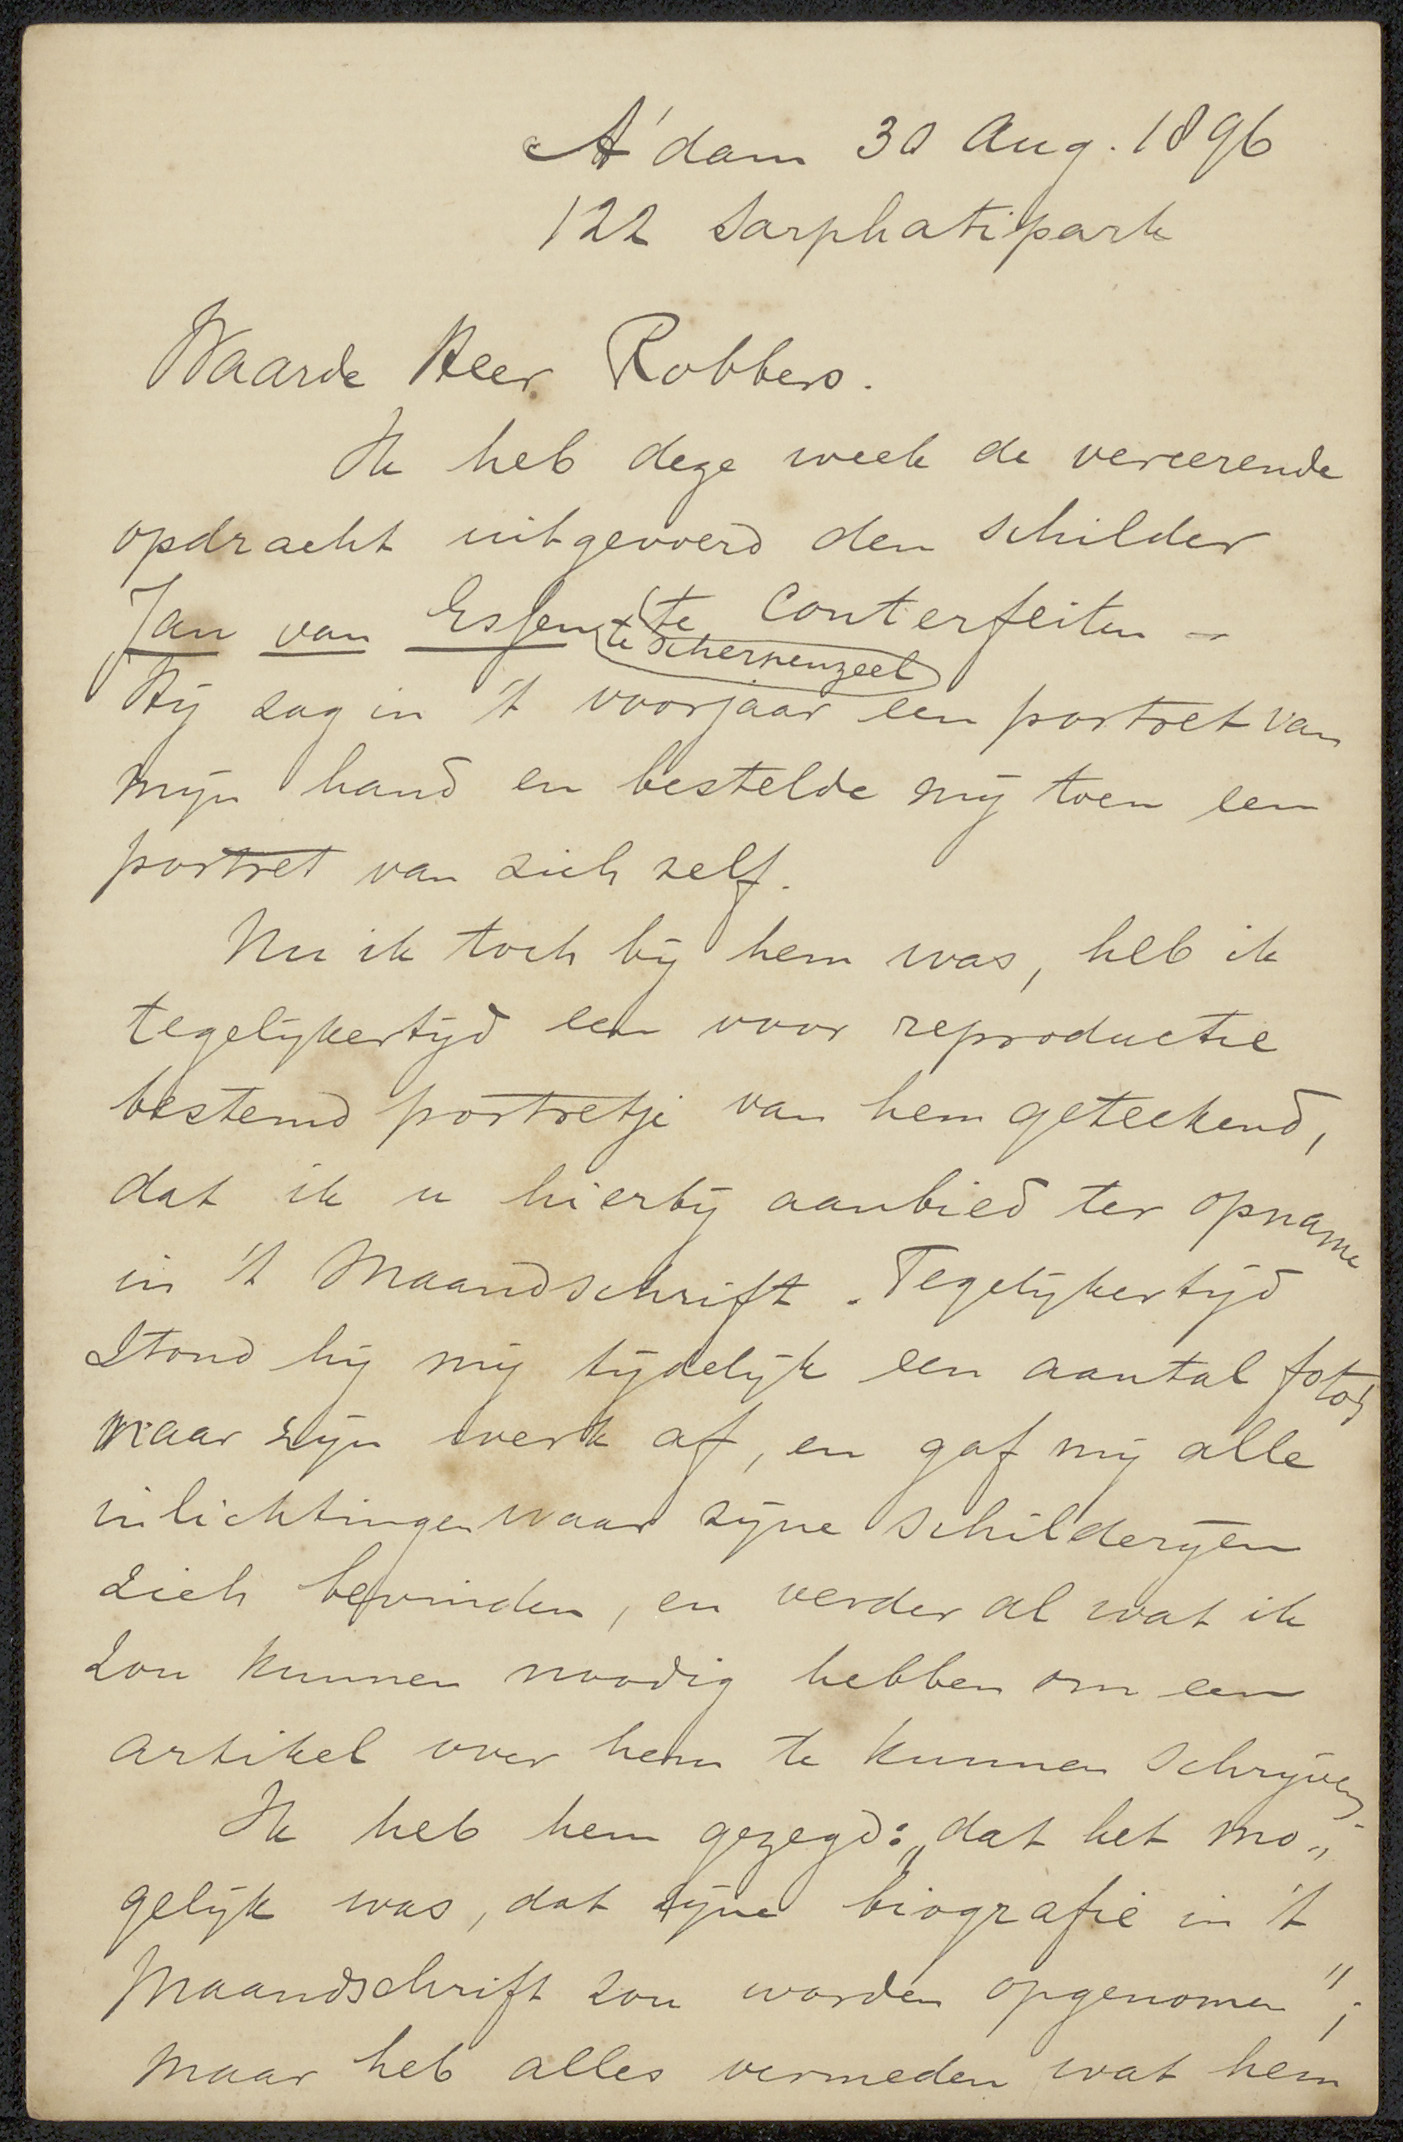 A'dam 30 Aug. 1896
122 Sarphatipark
Waarde Heer Robbers.
Ik heb deze week de vereerende
opdracht uitgevoerd den schilder
Jan van Essen te conterfeiten –
te Scherpenzeel
Hij zag in 't voorjaar een portret van
mijn hand en bestelde mij toen een
portret van zich zelf.
Nu ik toch bij hem was, heb ik
tegelijkertijd een voor reproductie
bestemd portretje van hem geteekend,
dat ik u hierbij aanbied ter opname
in 't Maandschrift. Tegelijkertijd
stond hij mij tijdelijk een aantal foto's
naar zijn werk af, en gaf mij alle
inlichtingen waar zijne schilderijen
zich bevinden, en verder al wat ik
zou kunnen noodig hebben om een
artikel over hem te kunnen schrijven.
Ik heb hem gezegd: „dat het mo„
gelijk was, dat zijne biografie in 't
Maandschrift zou worden opgenomen";
maar heb alles vermeden wat hem